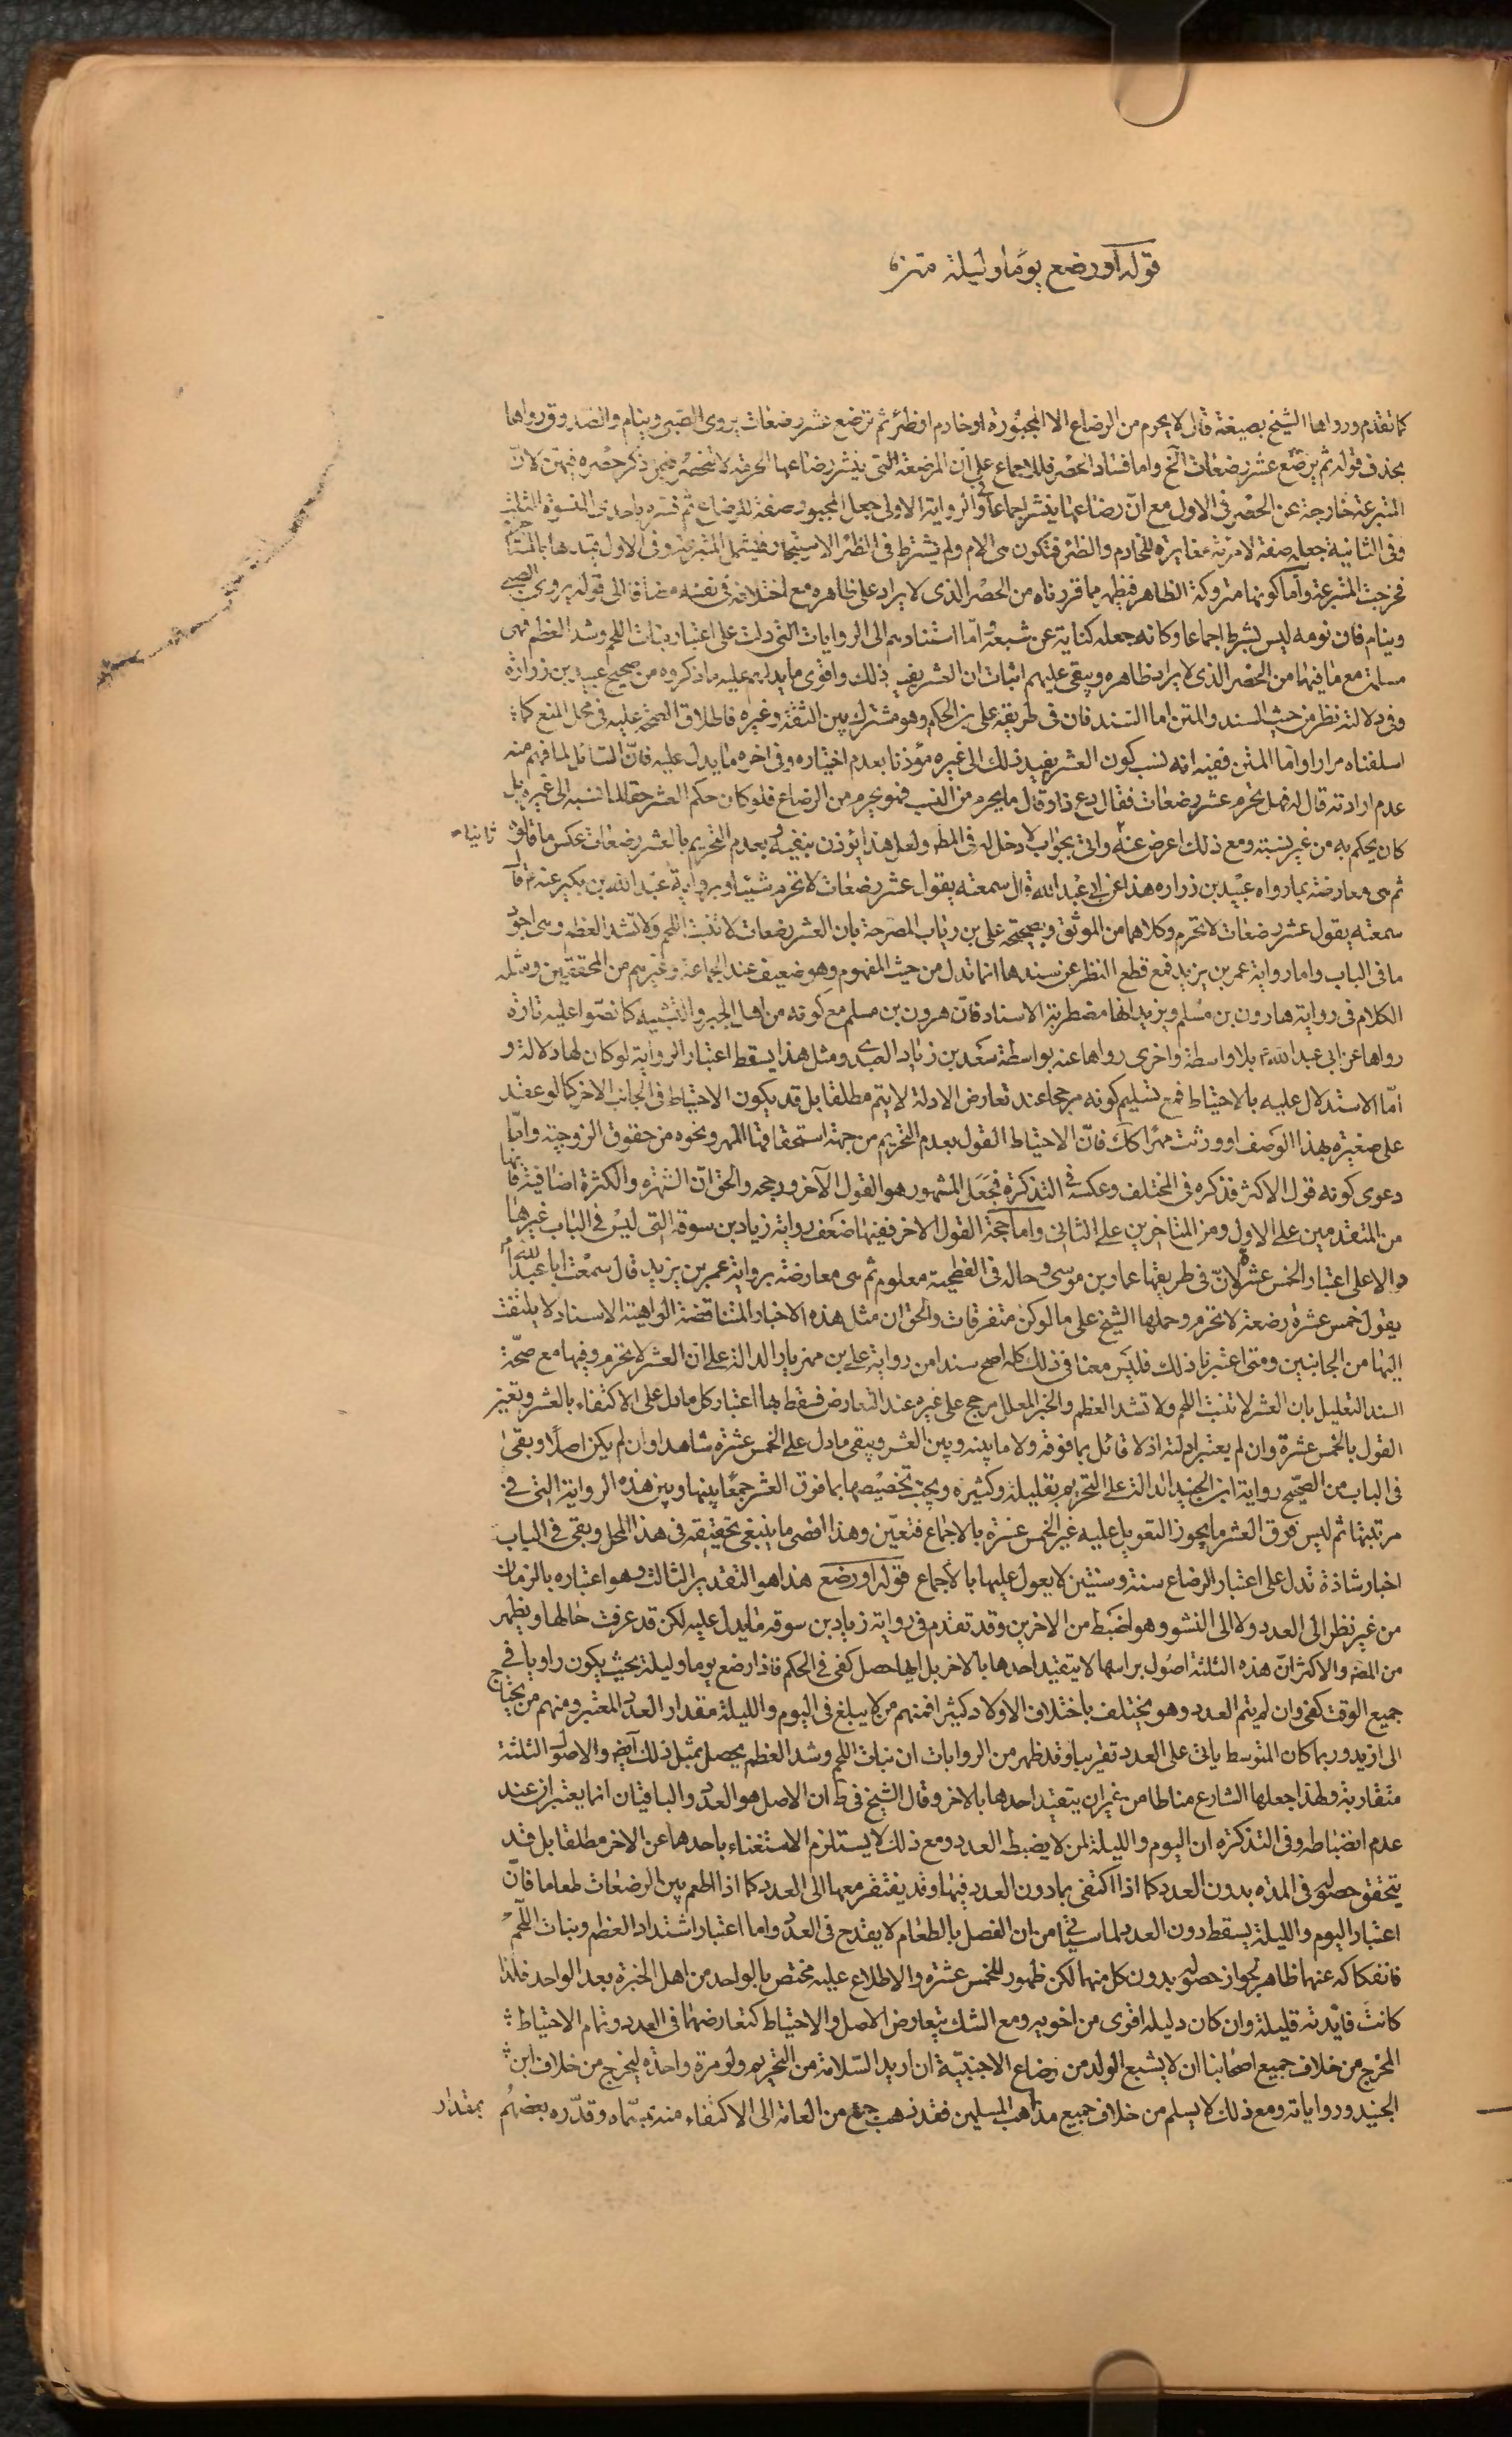 قوله او رضع يوما وليلة متن
كما تقدم ورواها الشيخ بصيغة قال لا يحرم من الرضاع الا المجبورة او خادم او ظئر ثم ترضع عشر رضعات يروى الصبي وينام والصدوق رواها
بحذف قوله ثم يرضع عشر رضعات الخ واما فساد الحصر فللاجماع على ان المرضعة التي ينشر رضاعها الحرمة لا تنحصر فيمن ذكر حصره فيهن لان
المتبرعة خارجة عن الحصر في الاول مع ان رضاعها ينشر اجماعا وفي الرواية الاولى جعل المجبور صفة للرضاع ثم فسره باحدى النسوة الثلث
وفى الثانية جعله صفة لامرئة مغايرة للخادم والظئر فتكون هي الام ولم يشترط في الظئر الاستيجار فيشمل المتبرعة وفى الاول قيدها بالمستاجرة
فخرجت المتبرعة واما كونها متروكة الظاهر فيظهر مما قررناه من الحصر الذى لا يراد على ظاهره مع اختلافه في نفسه مضافا الى قوله يروى الصبي
وينام فان نومه ليس بشرط اجماعا وكانه جعله كناية عن شبعه واما استنادهم الى الروايات التى دلت على اعتبار نبات اللحم وشد العظم فهى
مسلمة مع ما فيها من الحصر الذى لا يراد ظاهره ويبقى عليهم اثبات ان العشر يفيد ذلك واقوى ما يدلهم عليه ما ذكروه من صحيح عبيد بن زرارة
وفى دلالته نظر من حيث السند والمتن اما السند فان فى طريقه على بن الحكم وهو مشترك بين الثقة وغيره فاطلاق الصحة عليه فى محل المنع كما
اسلفناه مرارا واما المتن ففيه انه نسب كون العشر يفيد ذلك الى غيره مؤذنا بعدم اختياره وفى اخره ما يدل عليه فان السائل لما فهم منه
عدم ارادته قال له فهل يحرم عشر رضعات فقال دع ذا وقال ما يحرم من النسب فهو يحرم من الرضاع فلو كان حكم العشر حقا لما نسبه الى غيره بل
كان يحكم به من غير نسبته ومع ذلك اعرض عنه واتى بجواب لا دخل له فى المط ولعل هذا يؤذن بنفيه وبعدم التحريم بالعشر رضعات عكس ما قالوه ثانيا
ثم هى معارضة بما رواه عبيد بن زراره هذا عن ابى عبد الله قال سمعته يقول عشر رضعات لا تحرم شيئا وبرواية عبد الله بن بكير عنه ع قال
سمعته يقول عشر رضعات لا تحرم وكلاهما من الموثق وبصحيحة على بن رئاب المصرحة بان العشر رضعات لا تنبت اللحم ولا تشد العظم وهى اجود
ما فى الباب واما رواية عمر بن يزيد فمع قطع النظر عن سندها انما تدل من حيث المفهوم وهو ضعيف عند الجماعة وغيرهم من المحققين ومثله
الكلام فى رواية هارون بن مسلم ويزيد انها مضطربة الاسناد فان هرون بن مسلم مع كونه من اهل الجبر والتشبيه كما نصوا عليه تارة
رواها عن ابى عبد الله ع بلا واسطة واخرى رواها عنه بواسطة سعد بن زياد العبدى ومثل هذا يسقط اعتبار الرواية لو كان لها دلالة و
اما الاستدلال عليه بالاحتياط فمع تسليم كونه مرجحا عند تعارض الادلة لا يتم مطلقا بل قد يكون الاحتياط فى الجانب الاخر كما لو عقد
على صغيرة بهذا الوصف او ورثت مهرا كك فان الاحتياط القول بعدم التحريم من جهة استحقاقها المهر ونحوه من حقوق الزوجية واما
دعوى كونه قول الاكثر فذكره فى المختلف وعكسه فى التذكرة فجعل المشهور هو القول الآخر ورجحه والحق ان الشهرة والكثرة اضافية فانها
من المتقدمين على الاول ومن المتاخرين على الثانى واما حجة القول الاخر ففيها ضعف رواية زياد بن سوقه التى ليس فى الباب غيرها
دالا على اعتبار الخمس عشرة لان فى طريقها عمار بن موسى وحاله فى الفطحية معلوم ثم هى معارضة برواية عمر بن يزيد قال سمعت ابا عبد الله ع
يقول خمس عشرة رضعة لا تحرم وحملها الشيخ على ما لو كن متفرقات والحق ان مثل هذه الاخبار المتناقضة الواهية الاسناد لا يلتفت
اليها من الجانبين ومتى اعتبرنا ذلك فليس معنا فى ذلك كله اصح سندا من رواية على بن مهزيار الدالة على ان العشر لا تحرم وفيها مع صحة
السند التعليل بان العشر لا تنبت اللحم ولا تشد العظم والخبر المعلل مرجح على غيره عند التعارض فسقط بها اعتبار كل ما دل على الاكتفاء بالعشر وتعين
القول بالخمس عشرة وان لم يعتبر ادلته اذ لا قائل بما فوقه ولا ما بينه وبين العشر ويبقى ما دل على الخمس عشرة شاهدا وان لم يكن اصلا وبقى
فى الباب من الصحيح رواية ابن الجنيد الدالة على التحريم بقليله وكثيره ويجب تخصيصها بما فوق العشر جمعا بينها وبين هذه الرواية التى فى
مرتبتها ثم ليس فوق العشر ما يجوز التعويل عليه غير الخمس عشرة بالاجماع فتعين وهذا اقصى ما ينبغى تحقيقه فى هذا المحل وبقى فى الباب
اخبار شاذة تدل على اعتبار الرضاع سنة وسنتين لا يعول عليها بالاجماع قوله او رضع هذا هو التقدير الثالث وهو اعتباره بالزمان
من غير نظر الى العدد ولا الى النشو وهو اضبط من الاخرين وقد تقدم فى رواية زياد بن سوقه ما يدل عليه لكن قد عرفت حالها ويظهر
من المصه والاكثر ان هذه الثلثة اصول براسها لا يتقيد احدها بالاخر بل ايها حصل كفى فى الحكم فاذا رضع يوما وليلة بحيث يكون راويا فى
جميع الوقت كفى وان لم يتم العدد وهو يختلف باختلاف الاولاد كثيرا فمنهم من لا يبلغ فى اليوم والليلة مقدار العدد المعتبر ومنهم من يحتاج
الى ازيد وربما كان المتوسط ياتى على العدد تقريبا وقد ظهر من الروايات ان نبات اللحم وشد العظم يحصل بمثل ذلك ايضه والاصول الثلثة
متقاربة ولهذا جعلها الشارع مناطا من غير ان يتقيد احدها بالاخر وقال الشيخ فى ط ان الاصل هو العدد والباقيتان انما يعتبران عند
عدم انضباطه وفى التذكرة ان اليوم والليلة لمن لا يضبط العدد ومع ذلك لا يستلزم الاستغناء باحدهما عن الاخر مطلقا بل قد
يتحقق حصوله فى المدة بدون العدد كما اذا اكتفى بما دون العدد فيها وقد يفتقر معها الى العدد كما اذا اطعم بين الرضعات طعاما فان
اعتبار اليوم والليلة يسقط دون العدد لما سياتى من ان الفصل بالطعام لا يقدح فى العدد واما اعتبار اشتداد العظم ونبات اللحم
فانفكاكه عنهما ظاهر لجواز حصوله بدون كل منهما لكن ظهور للخمس عشرة والاطلاع عليه مختص بالواحد من اهل الخبرة بعد الواحد فلذا
كانت فايدته قليلة وان كان دليله اقوى من اخويه ومع الشك يتعارض الاصل والاحتياط كتعارضهما فى العدد وتمام الاحتياط
المخرج من خلاف جميع اصحابنا ان لا يشبع الولد من رضاع الاجنبية ان اريد السلامة من التحريم ولو مرة واحدة ليخرج من خلاف ابن
الجنيد ورواياته ومع ذلك لا يسلم من خلاف جميع مذاهب المسلمين فقد ذهب جمع من العامة الى الاكتفاء منه بمسماه وقدره بعضهم بمقدار